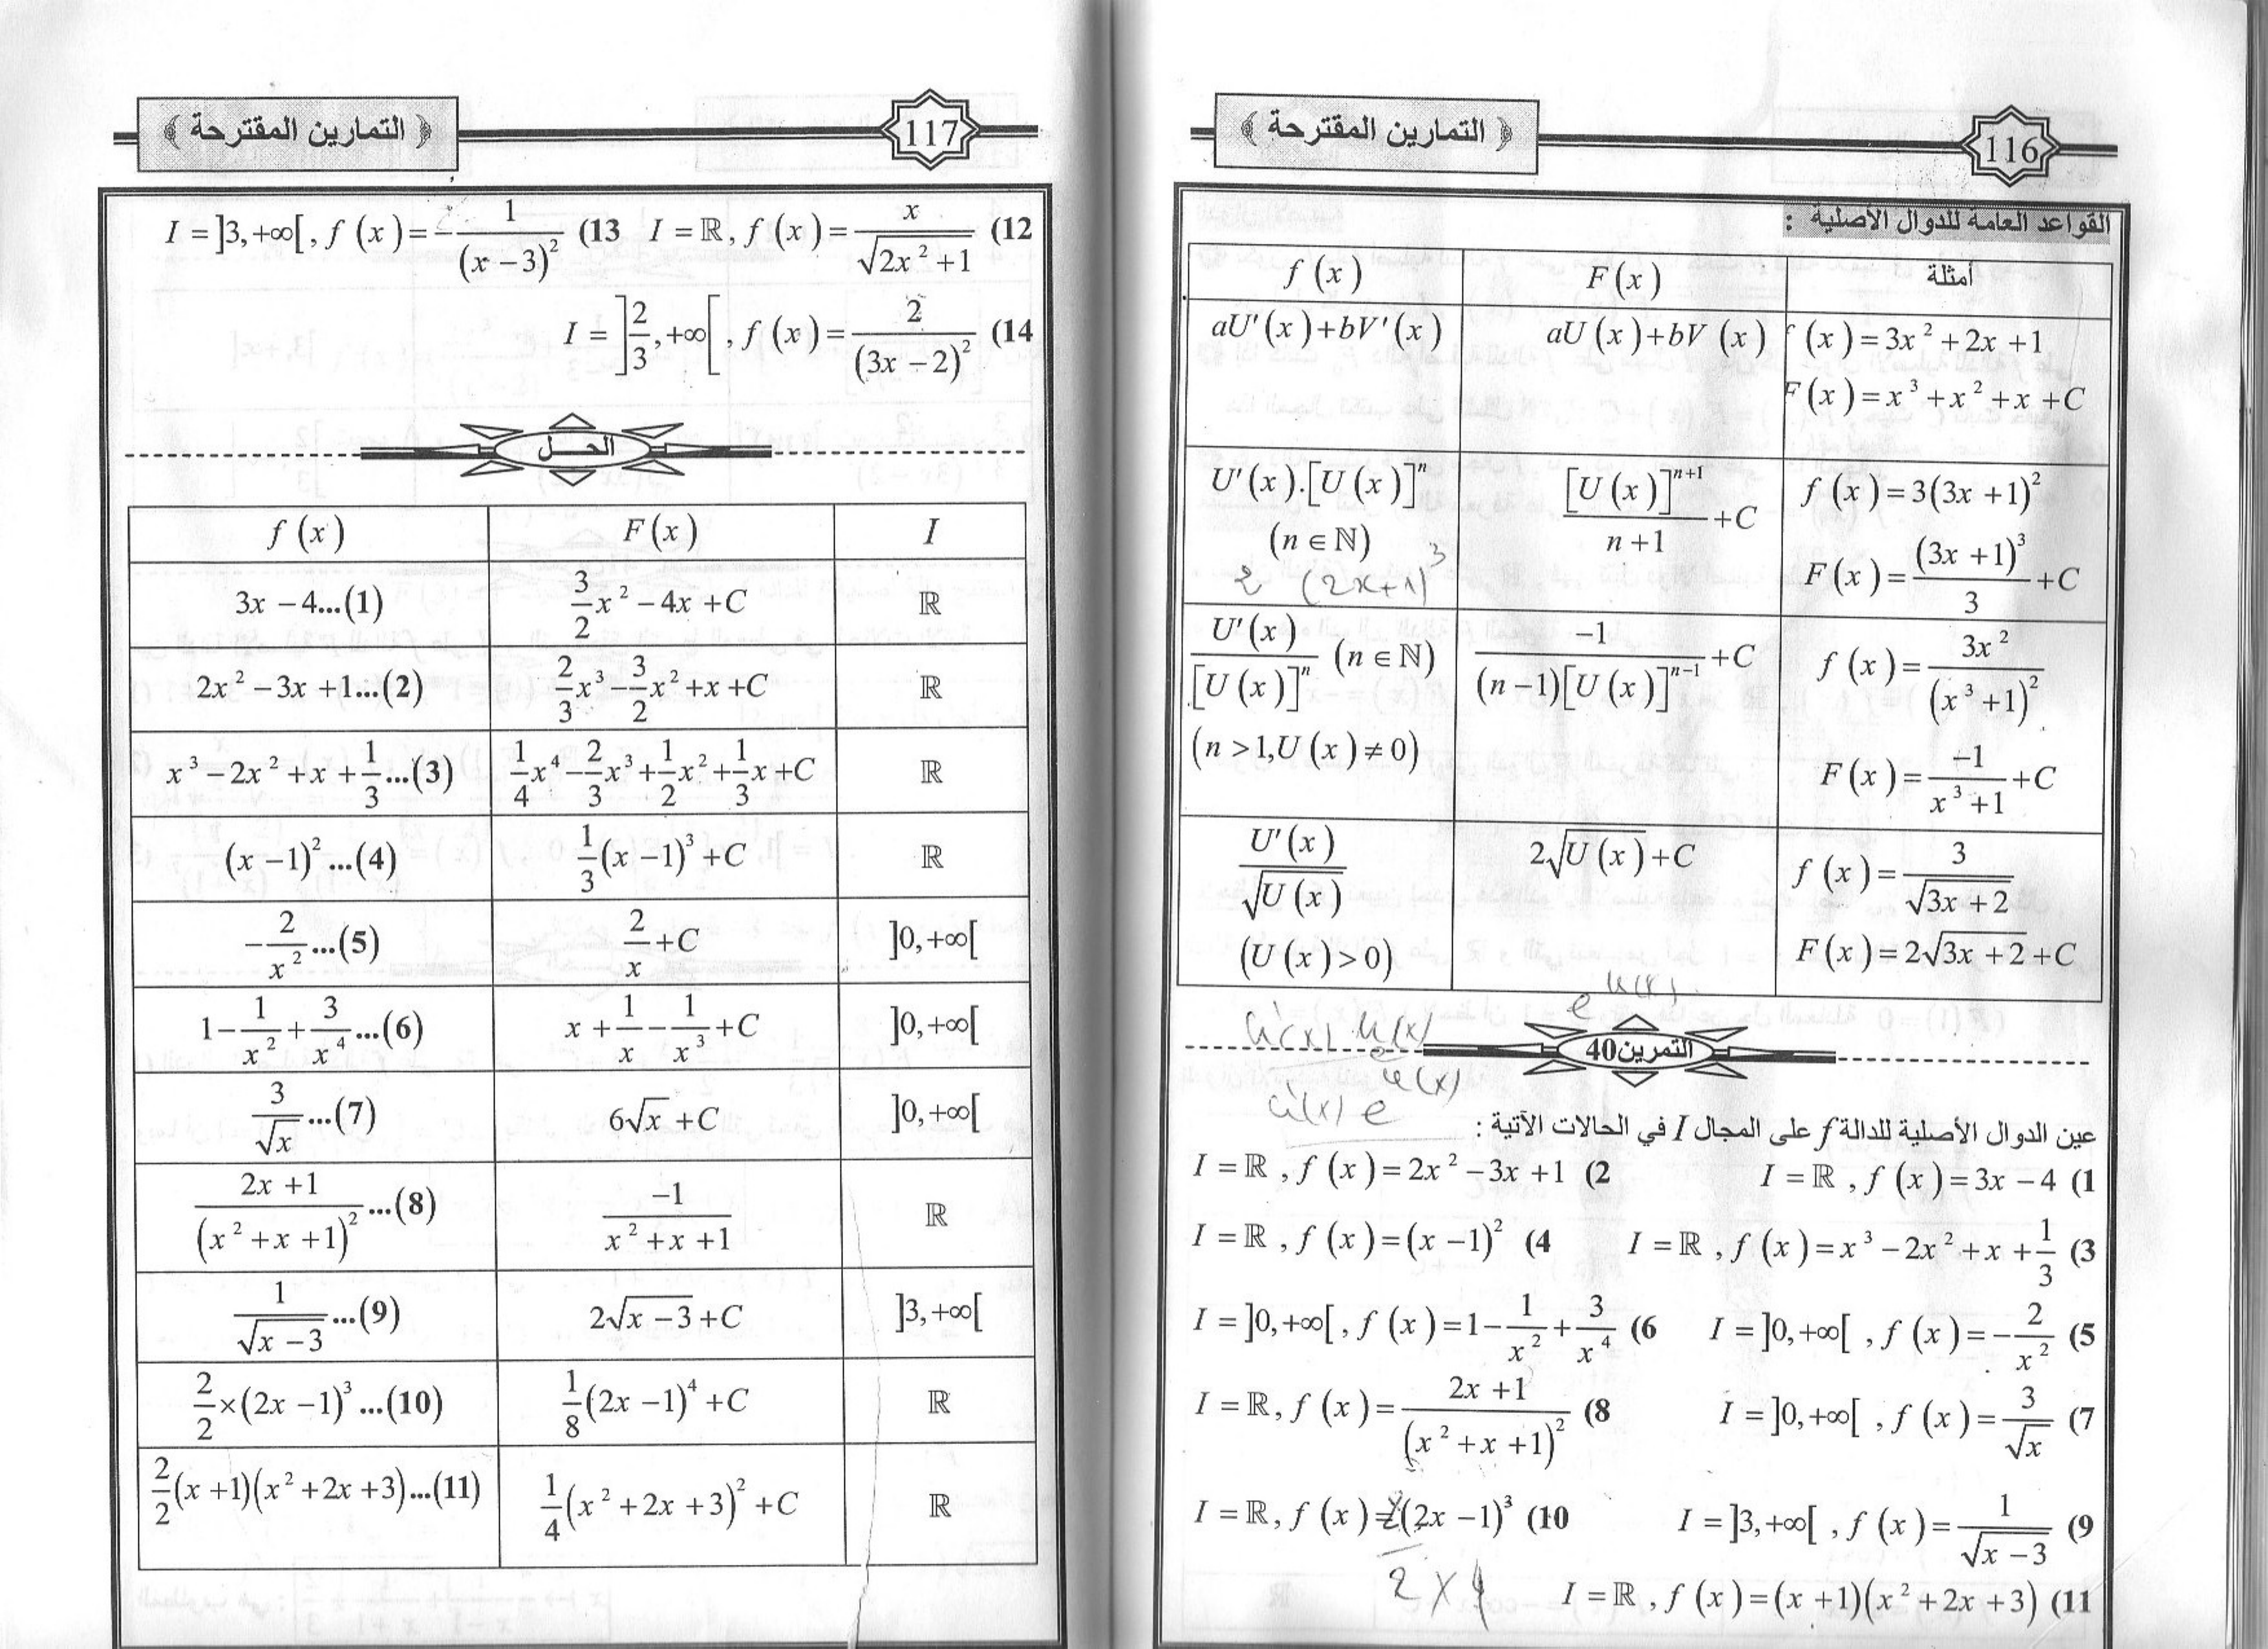 116
﴿ التمارين المقترحة ﴾
القواعد العامة للدوال الأصلية :
f (x) F (x) أمثلة
aU'(x)+bV'(x) aU (x)+bV (x) f (x)=3x²+2x+1
F (x)=x³+x²+x+C
U'(x).[U (x)]ⁿ [U (x)]ⁿ⁺¹/(n+1) +C f (x)=3(3x+1)²
(n∈ℕ) F (x)=(3x+1)³/3 +C
2 (2x+1)³
U'(x)/[U (x)]ⁿ (n∈ℕ) −1/((n−1)[U (x)]ⁿ⁻¹) +C f (x)=3x²/(x³+1)²
(n>1,U (x)≠0) F (x)=−1/(x³+1) +C
U'(x)/√U (x) 2√U (x)+C f (x)=3/√3x+2
(U (x)>0) F (x)=2√3x+2+C
التمرين40
عين الدوال الأصلية للدالة f على المجال I في الحالات الآتية :
1) I=ℝ , f (x)=3x−4 2) I=ℝ , f (x)=2x²−3x+1
3) I=ℝ , f (x)=x³−2x²+x+1/3 4) I=ℝ , f (x)=(x−1)²
5) I=]0,+∞[ , f (x)=−2/x² 6) I=]0,+∞[ , f (x)=1−1/x²+3/x⁴
7) I=]0,+∞[ , f (x)=3/√x 8) I=ℝ, f (x)=(2x+1)/(x²+x+1)²
9) I=]3,+∞[ , f (x)=1/√x−3 10) I=ℝ, f (x)=(2x−1)³
2×4
11) I=ℝ , f (x)=(x+1)(x²+2x+3)
117
﴿ التمارين المقترحة ﴾
12) I=ℝ, f (x)=x/√2x²+1 13) I=]3,+∞[ , f (x)=−1/(x−3)²
14) I=]2/3,+∞[ , f (x)=2/(3x−2)²
الحـل
f (x) F (x) I
3x−4...(1) 3/2x²−4x+C ℝ
2x²−3x+1...(2) 2/3x³−3/2x²+x+C ℝ
x³−2x²+x+1/3...(3) 1/4x⁴−2/3x³+1/2x²+1/3x+C ℝ
(x−1)²...(4) 1/3(x−1)³+C ℝ
−2/x²...(5) 2/x+C ]0,+∞[
1−1/x²+3/x⁴...(6) x+1/x−1/x³+C ]0,+∞[
3/√x...(7) 6√x+C ]0,+∞[
(2x+1)/(x²+x+1)²...(8) −1/(x²+x+1) ℝ
1/√x−3...(9) 2√x−3+C ]3,+∞[
2/2×(2x−1)³...(10) 1/8(2x−1)⁴+C ℝ
2/2(x+1)(x²+2x+3)...(11) 1/4(x²+2x+3)²+C ℝ